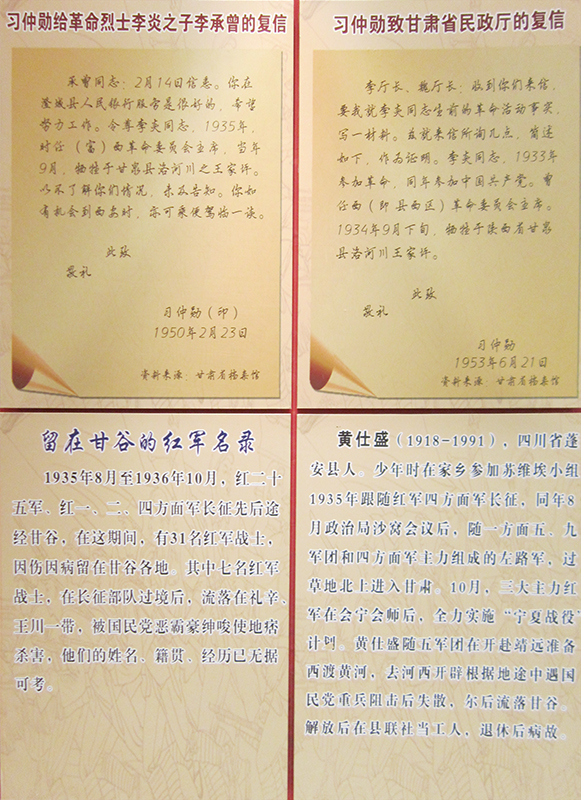 习仲勋给革命烈士李炎之子李承曾的复信
承曾同志：2月14日信悉。你在
澄城县人民银行服务是很好的，希望
努力工作。令尊李炎同志，1935年，
时任（富）西革命委员会主席，当年
9月，牺牲于甘泉县洛河川之王家坪。
以不了解你们情况，未及告知。你如
有机会到西安时，亦可乘便驾临一谈。
此致
敬礼
习仲勋（印）
1950年2月23日
资料来源：甘肃省档案馆
习仲勋致甘肃省民政厅的复信
李厅长、魏厅长：收到你们来信，
要我就李炎同志生前的革命活动事实，
写一材料。兹就来信所询几点，简述
如下，作为证明。李炎同志，1933年
参加革命，同年参加中国共产党。曾
任西（即县西区）革命委员会主席。
1934年9月下旬，牺牲于陕西省甘泉
县洛河川王家坪。
此致
敬礼
习仲勋
1953年6月21日
资料来源：甘肃省档案馆
留在甘谷的红军名录
1935年8月至1936年10月，红二十
五军、红一、二、四方面军长征先后途
经甘谷，在这期间，有31名红军战士，
因伤因病留在甘谷各地。其中七名红军
战士，在长征部队过境后，流落在礼辛、
王川一带，被国民党恶霸豪绅唆使地痞
杀害，他们的姓名、籍贯、经历已无据
可考。
黄仕盛（1918-1991），四川省蓬
安县人。少年时在家乡参加苏维埃小组
1935年跟随红军四方面军长征，同年8
月政治局沙窝会议后，随一方面五、九
军团和四方面军主力组成的左路军，过
草地北上进入甘肃。10月，三大主力红
军在会宁会师后，全力实施“宁夏战役”
计划。黄仕盛随五军团在开赴靖远准备
西渡黄河，去河西开辟根据地途中遇国
民党重兵阻击后失散，尔后流落甘谷。
解放后在县联社当工人，退休后病故。